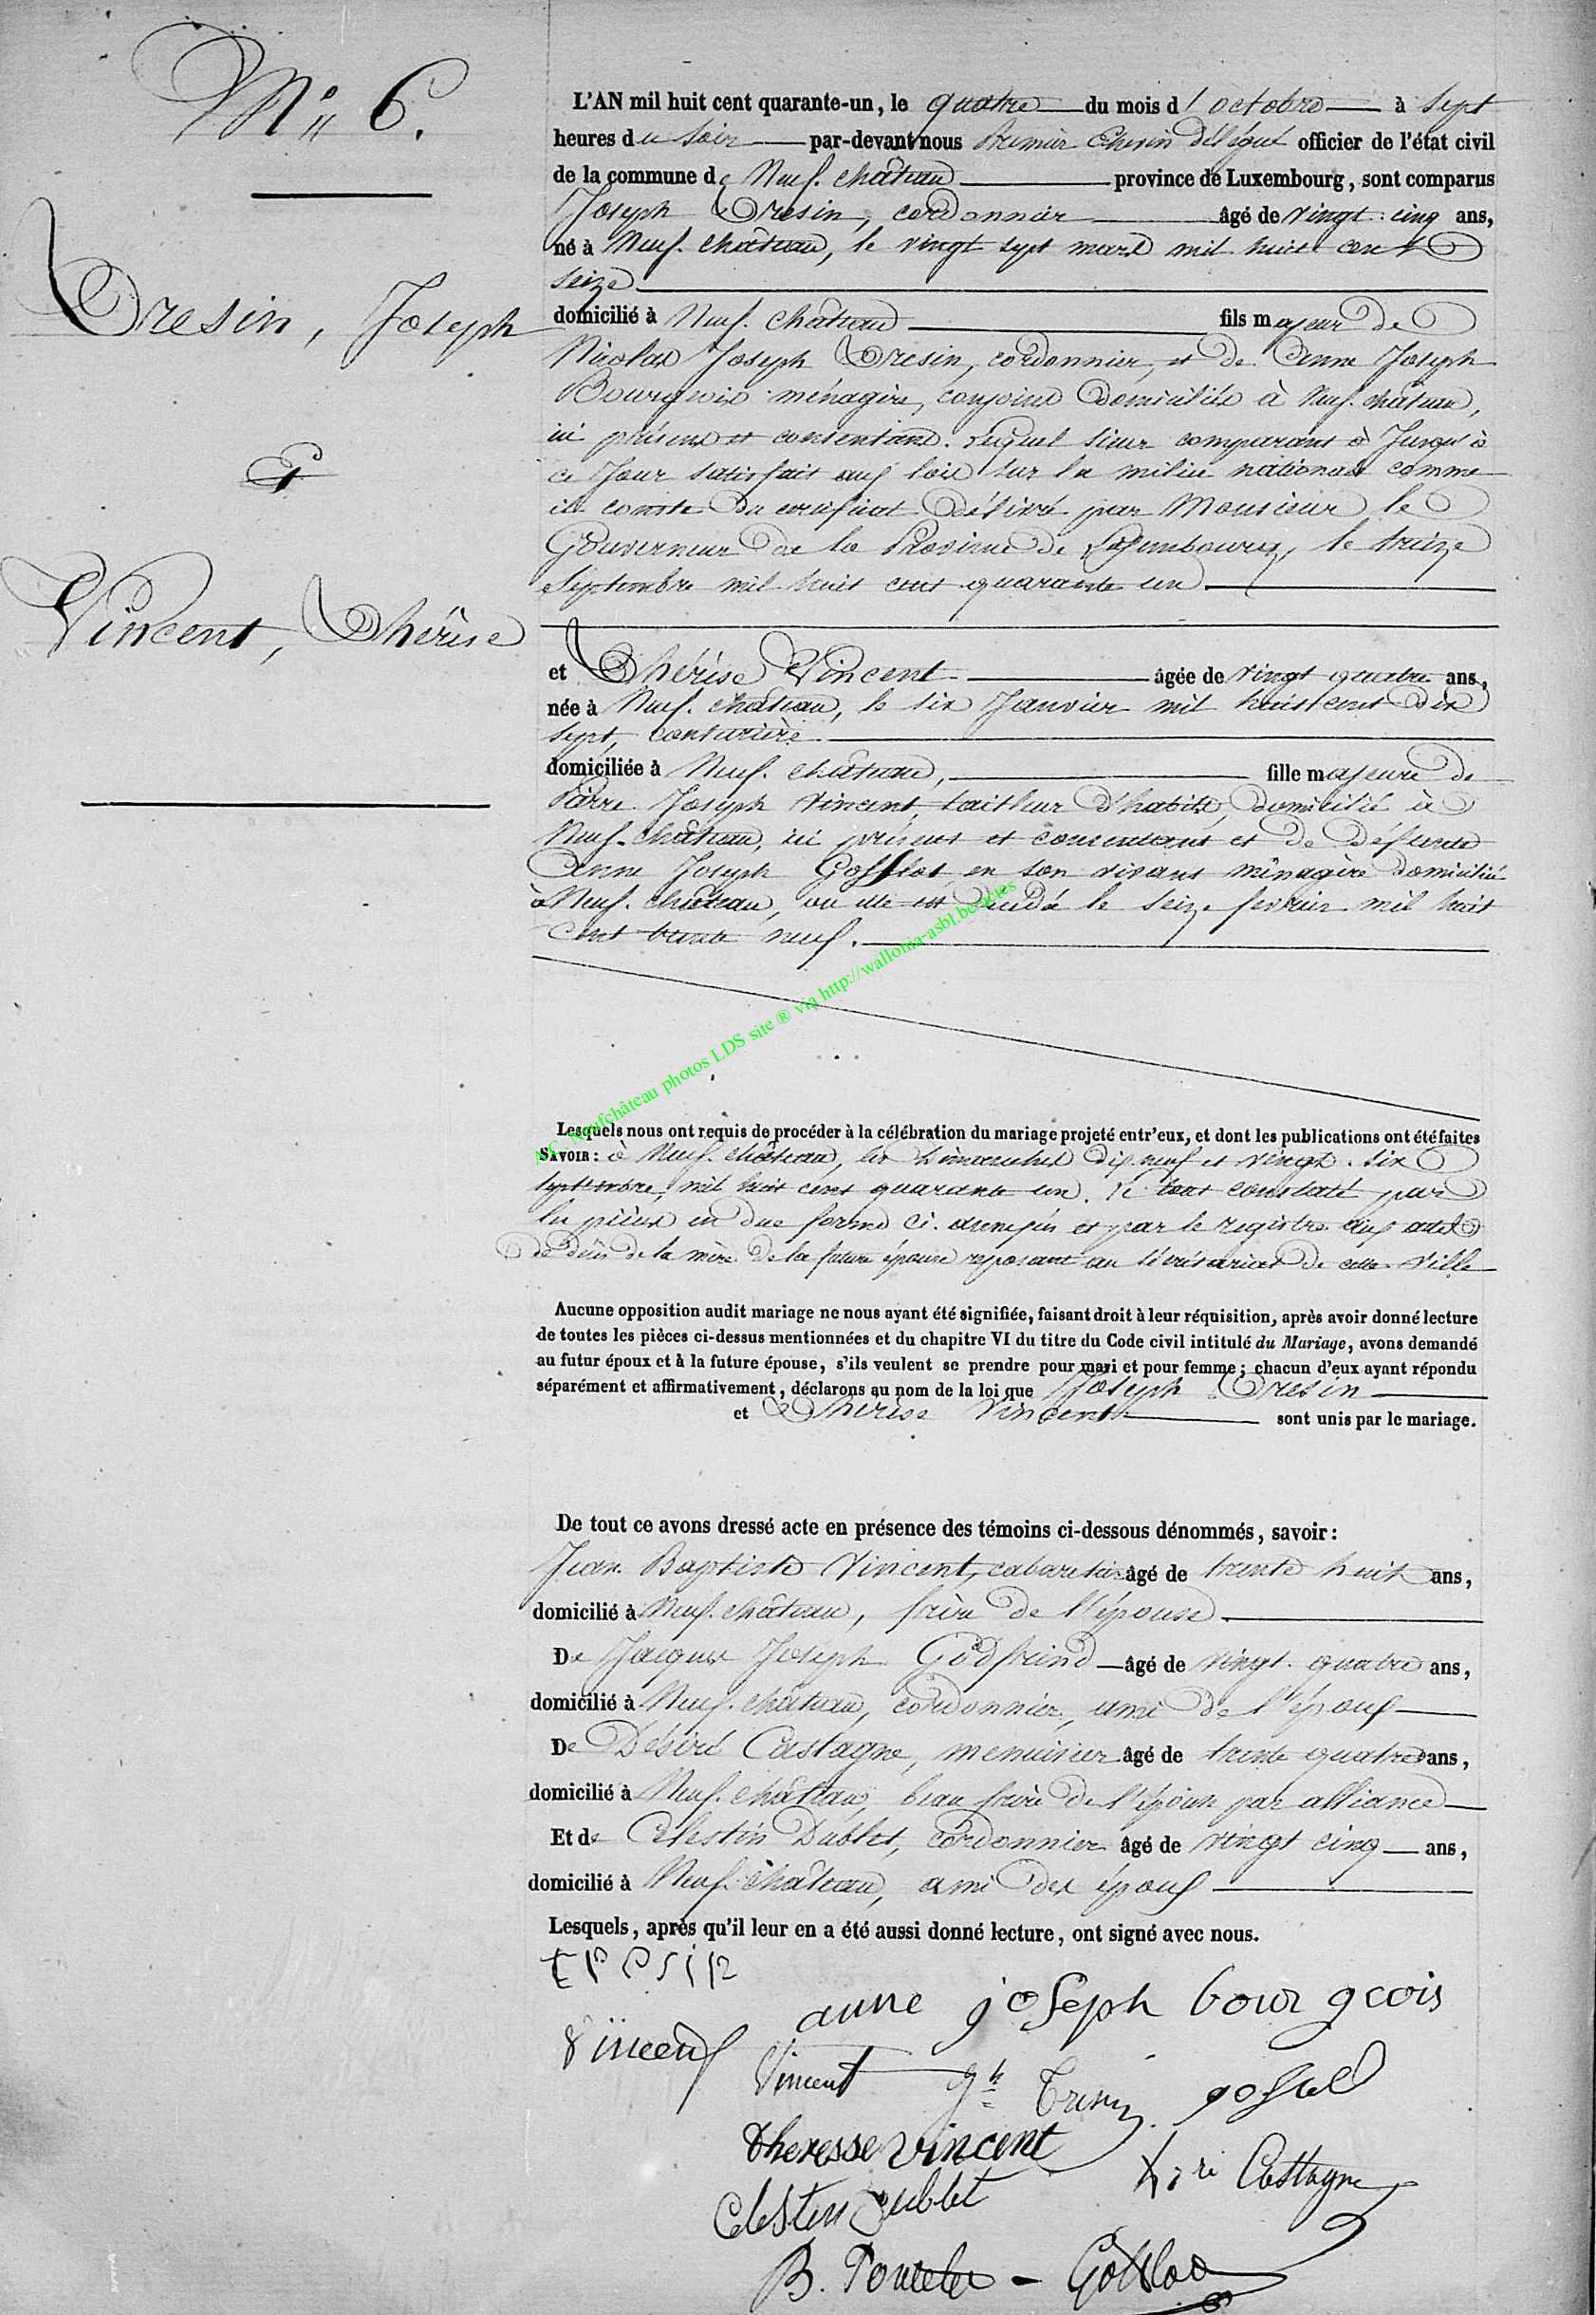 N° 6.
Tresin, Joseph
&
Vincent, Thérèse
L'AN mil huit cent quarante-un, le quatre du mois d'octobre à sept
heures du soir par-devant nous premier Echevin délégué officier de l'état civil
de la commune de Neuf-château province de Luxembourg, sont comparus
Joseph Tresin, cordonnier âgé de vingt-cinq ans,
né à Neuf-château, le vingt sept mars mil huit cent
seize
domicilié à Neuf-château fils majeur de
Nicolas Joseph Tresin, cordonnier, et de Anne Joseph
Bourgeois ménagère, conjoins domiciliés à Neuf-château,
ici présens et consentans. Lequel sieur comparant a jusqu'à
ce jour satisfait aux lois sur la milice nationale comme
il conste du certificat délivré par Monsieur le
Gouverneur de la Province de Luxembourg, le treize
Septembre mil huit cent quarante un
et Thérèse Vincent âgée de vingt quatre ans,
née à Neuf-château, le six Janvier mil huit cent dix
sept, couturière
domiciliée à Neuf-château, fille majeure de
Pierre Joseph Vincent, tailleur d'habits, domicilié à
Neuf-château, ici présent et consentant et de défunte
Anne Joseph Gofflot en son vivant ménagère domiciliée
à Neuf-château, où elle est décédée le seize février mil huit
cent trente neuf.
A.C. Neufchâteau photos LDS site ® via http://wallonia-asbl.be/actes
Lesquels nous ont requis de procéder à la célébration du mariage projeté entr'eux, et dont les publications ont été faites
SAVOIR : à Neuf-château, les Dimanches dix neuf et vingt-six
septembre, mil huit cent quarante un. Le tout constaté par
les pièces en due forme ci-annexées et par le registre aux actes
de décès de la mère de la future épouse reposant au secrétariat de cette ville
Aucune opposition audit mariage ne nous ayant été signifiée, faisant droit à leur réquisition, après avoir donné lecture
de toutes les pièces ci-dessus mentionnées et du chapitre VI du titre du Code civil intitulé du Mariage, avons demandé
au futur époux et à la future épouse, s'ils veulent se prendre pour mari et pour femme; chacun d'eux ayant répondu
séparément et affirmativement, déclarons au nom de la loi que Joseph Tresin
et Thérèse Vincent sont unis par le mariage.
De tout ce avons dressé acte en présence des témoins ci-dessous dénommés, savoir :
Jean Baptiste Vincent, cabaretier âgé de trente huit ans,
domicilié à Neuf-château, frère de l'épouse
De Jacques Joseph Godfrind âgé de vingt-quatre ans,
domicilié à Neuf-château, cordonnier, ami de l'époux
De Désiré Castagne, menuisier âgé de trente quatre ans,
domicilié à Neuf-château, beau frère de l'époux par alliance
Et de Célestin Dublet, cordonnier âgé de vingt cinq ans,
domicilié à Neuf-château, ami des époux
Lesquels, après qu'il leur en a été aussi donné lecture, ont signé avec nous.
tresin
anne joseph bourgeois
Vincent
Vincent Jh Tresin
Theresse vincent
Castagne
Celesten Dublet